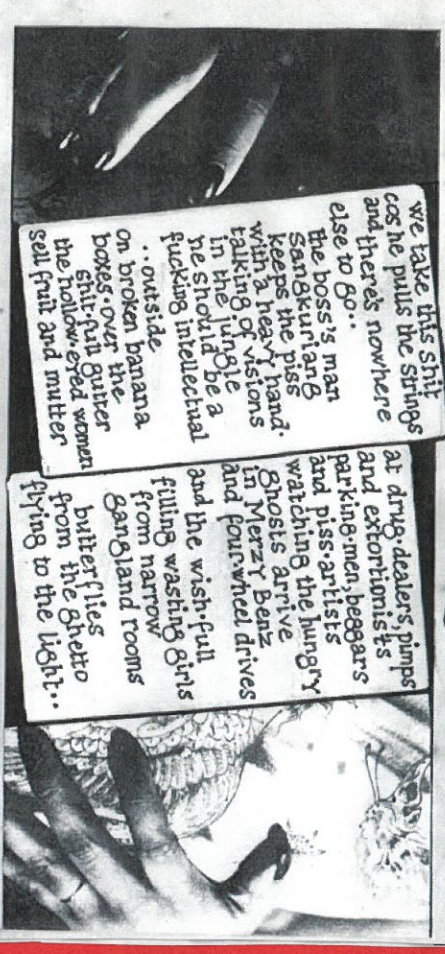 we take this shit
cos he pulls the strings
and there's nowhere
else to go..
the boss's man
Sangkuriang
keeps the piss
with a heavy hand.
talking of visions
in the jungle
he should be a
fucking intellectual
..outside
on broken banana
boxes.over the
shit-full gutter
the hollow-eyed women
sell fruit and mutter
at drug-dealers, pimps
and extortionists
parking-men, beggars
and piss-artists
watching the hungry
ghosts arrive
in Merzy Benz
and four-wheel drives
and the wish-full
filling wasting girls
from narrow
gangland rooms
butterflies
from the ghetto
flying to the light..